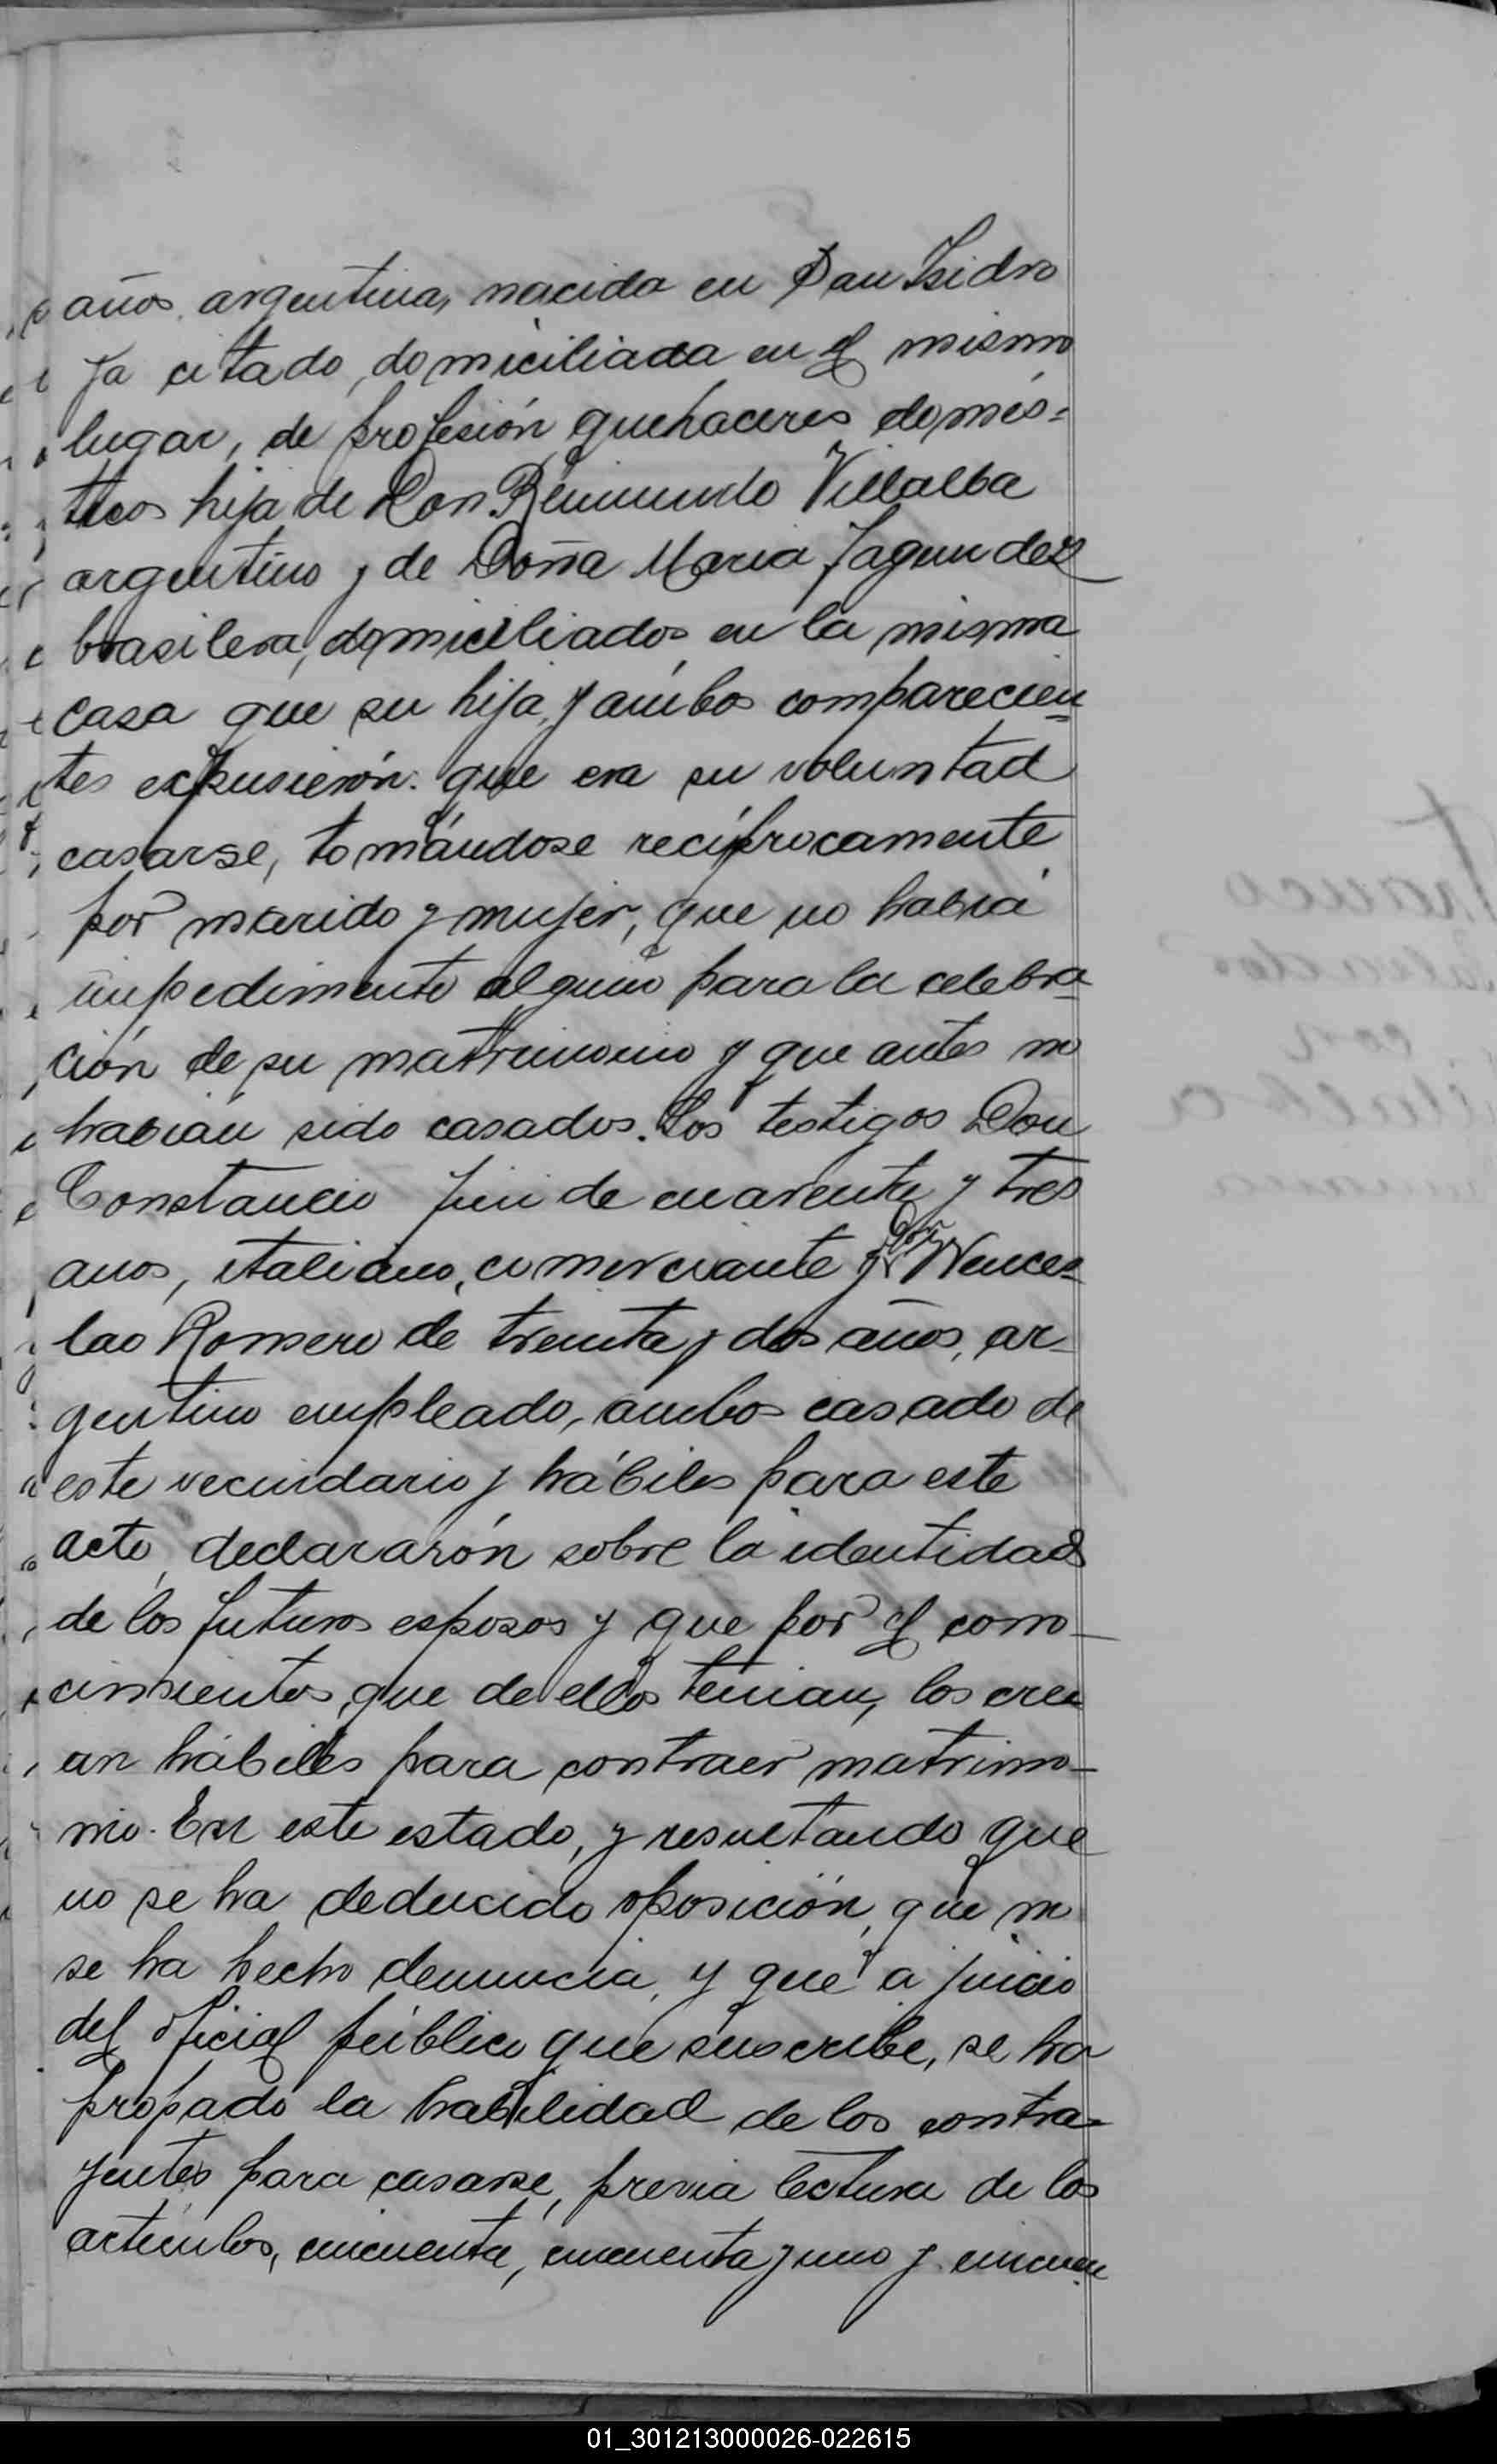 años, argentina, nacida en San Isidro
ya citado, domiciliada en el mismo
lugar, de profesión quehaceres domés=
ticos hija de Don Reimundo Villalba
argentino y de Doña Maria Fagundez
brasilera, domiciliados en la misma
casa que su hija, y ambos comparecien=
tes expusierón: que era su voluntad
casarse, tomándose recíprocamente
por marido y mujer, que no habiá
impedimento alguno para la celebra=
ción de su matrimonio y que antes no
habián sido casados. Los testigos Don
Constancio de cuarenta y tres
anos, italiano, comerciante y Don Wences=
lao Romero de treinta y dos años, ar-
gentino empleado, ambos casado de
este vecindario y hábiles para este
acto, declararón sobre la identidad
de los futuros esposos y que por el cono-
cimientos que de ellos tenian, los crei
an hábiles para contraer matrimo-
nio. En este estado, y resultando que
no se ha deducido oposición, que no
se ha hecho denuncia, y que a juicio
del oficial público que suscribe, se ha
propado la habilidad de los contra=
yentes para casarse, previa lectura de los
articulos, cincuenta, cincuenta y uno y cincuen
01_301213000026-022615